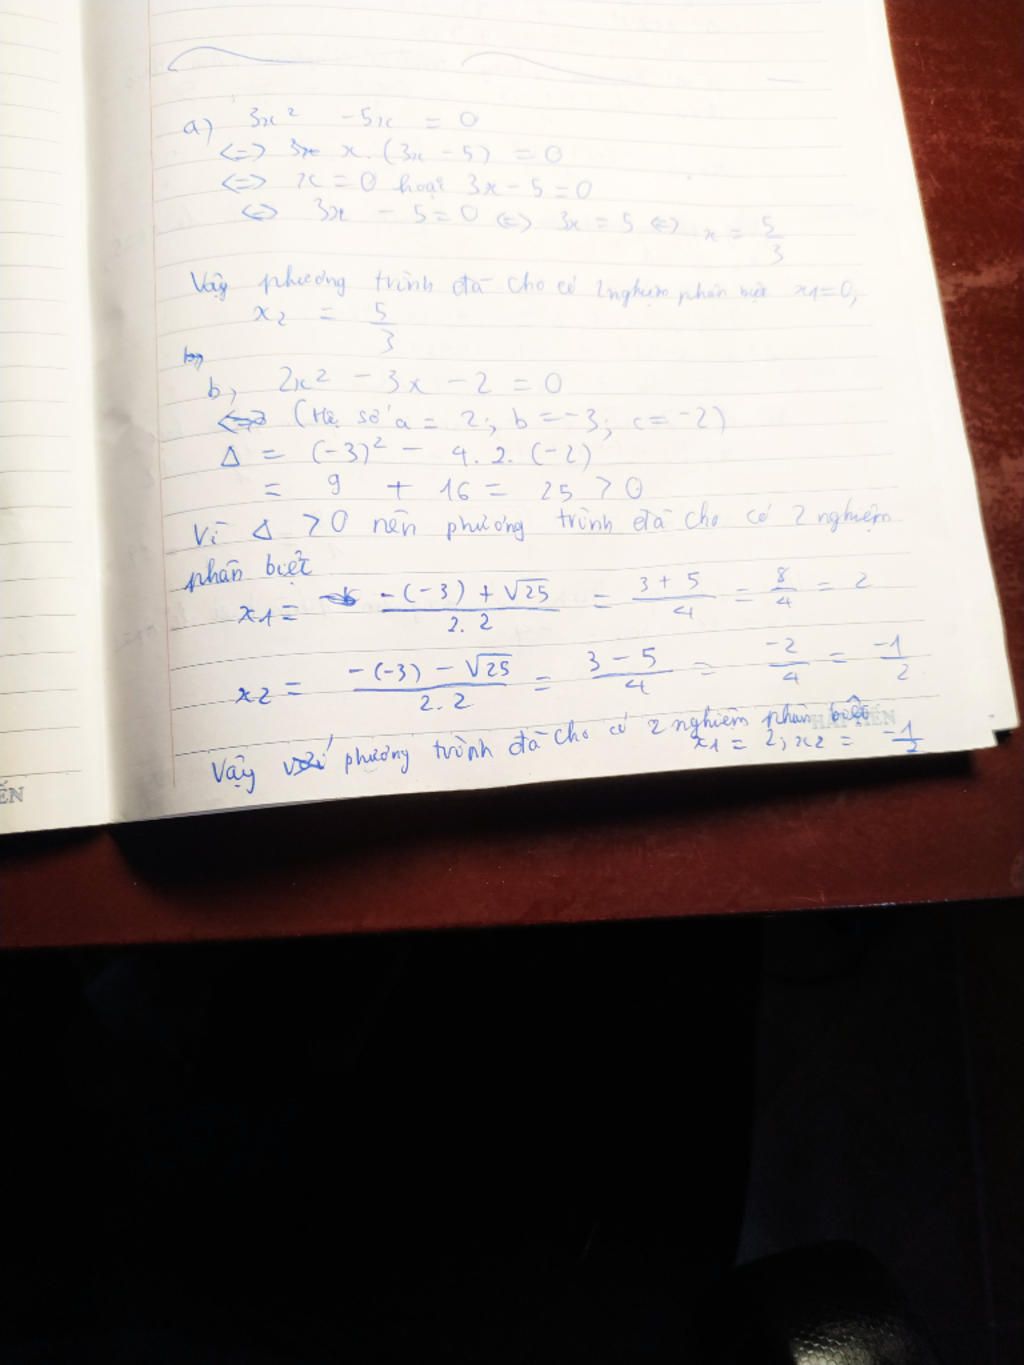 a) 3x² - 5x = 0
<=> x.(3x - 5) = 0
<=> x = 0 hoặc 3x - 5 = 0
<=> 3x - 5 = 0 <=> 3x = 5 <=> x = 5/3
Vậy phương trình đã cho có 2 nghiệm phân biệt x1 = 0,
x2 = 5/3
b, 2x² - 3x - 2 = 0
(Hệ số a = 2; b = -3; c = -2)
Δ = (-3)² - 4. 2. (-2)
= 9 + 16 = 25 > 0
Vì Δ > 0 nên phương trình đã cho có 2 nghiệm
phân biệt
x1 = (-(-3) + √25)/(2. 2) = (3 + 5)/4 = 8/4 = 2
x2 = (-(-3) - √25)/(2. 2) = (3 - 5)/4 = -2/4 = -1/2
Vậy phương trình đã cho có 2 nghiệm phân biệt
x1 = 2; x2 = -1/2